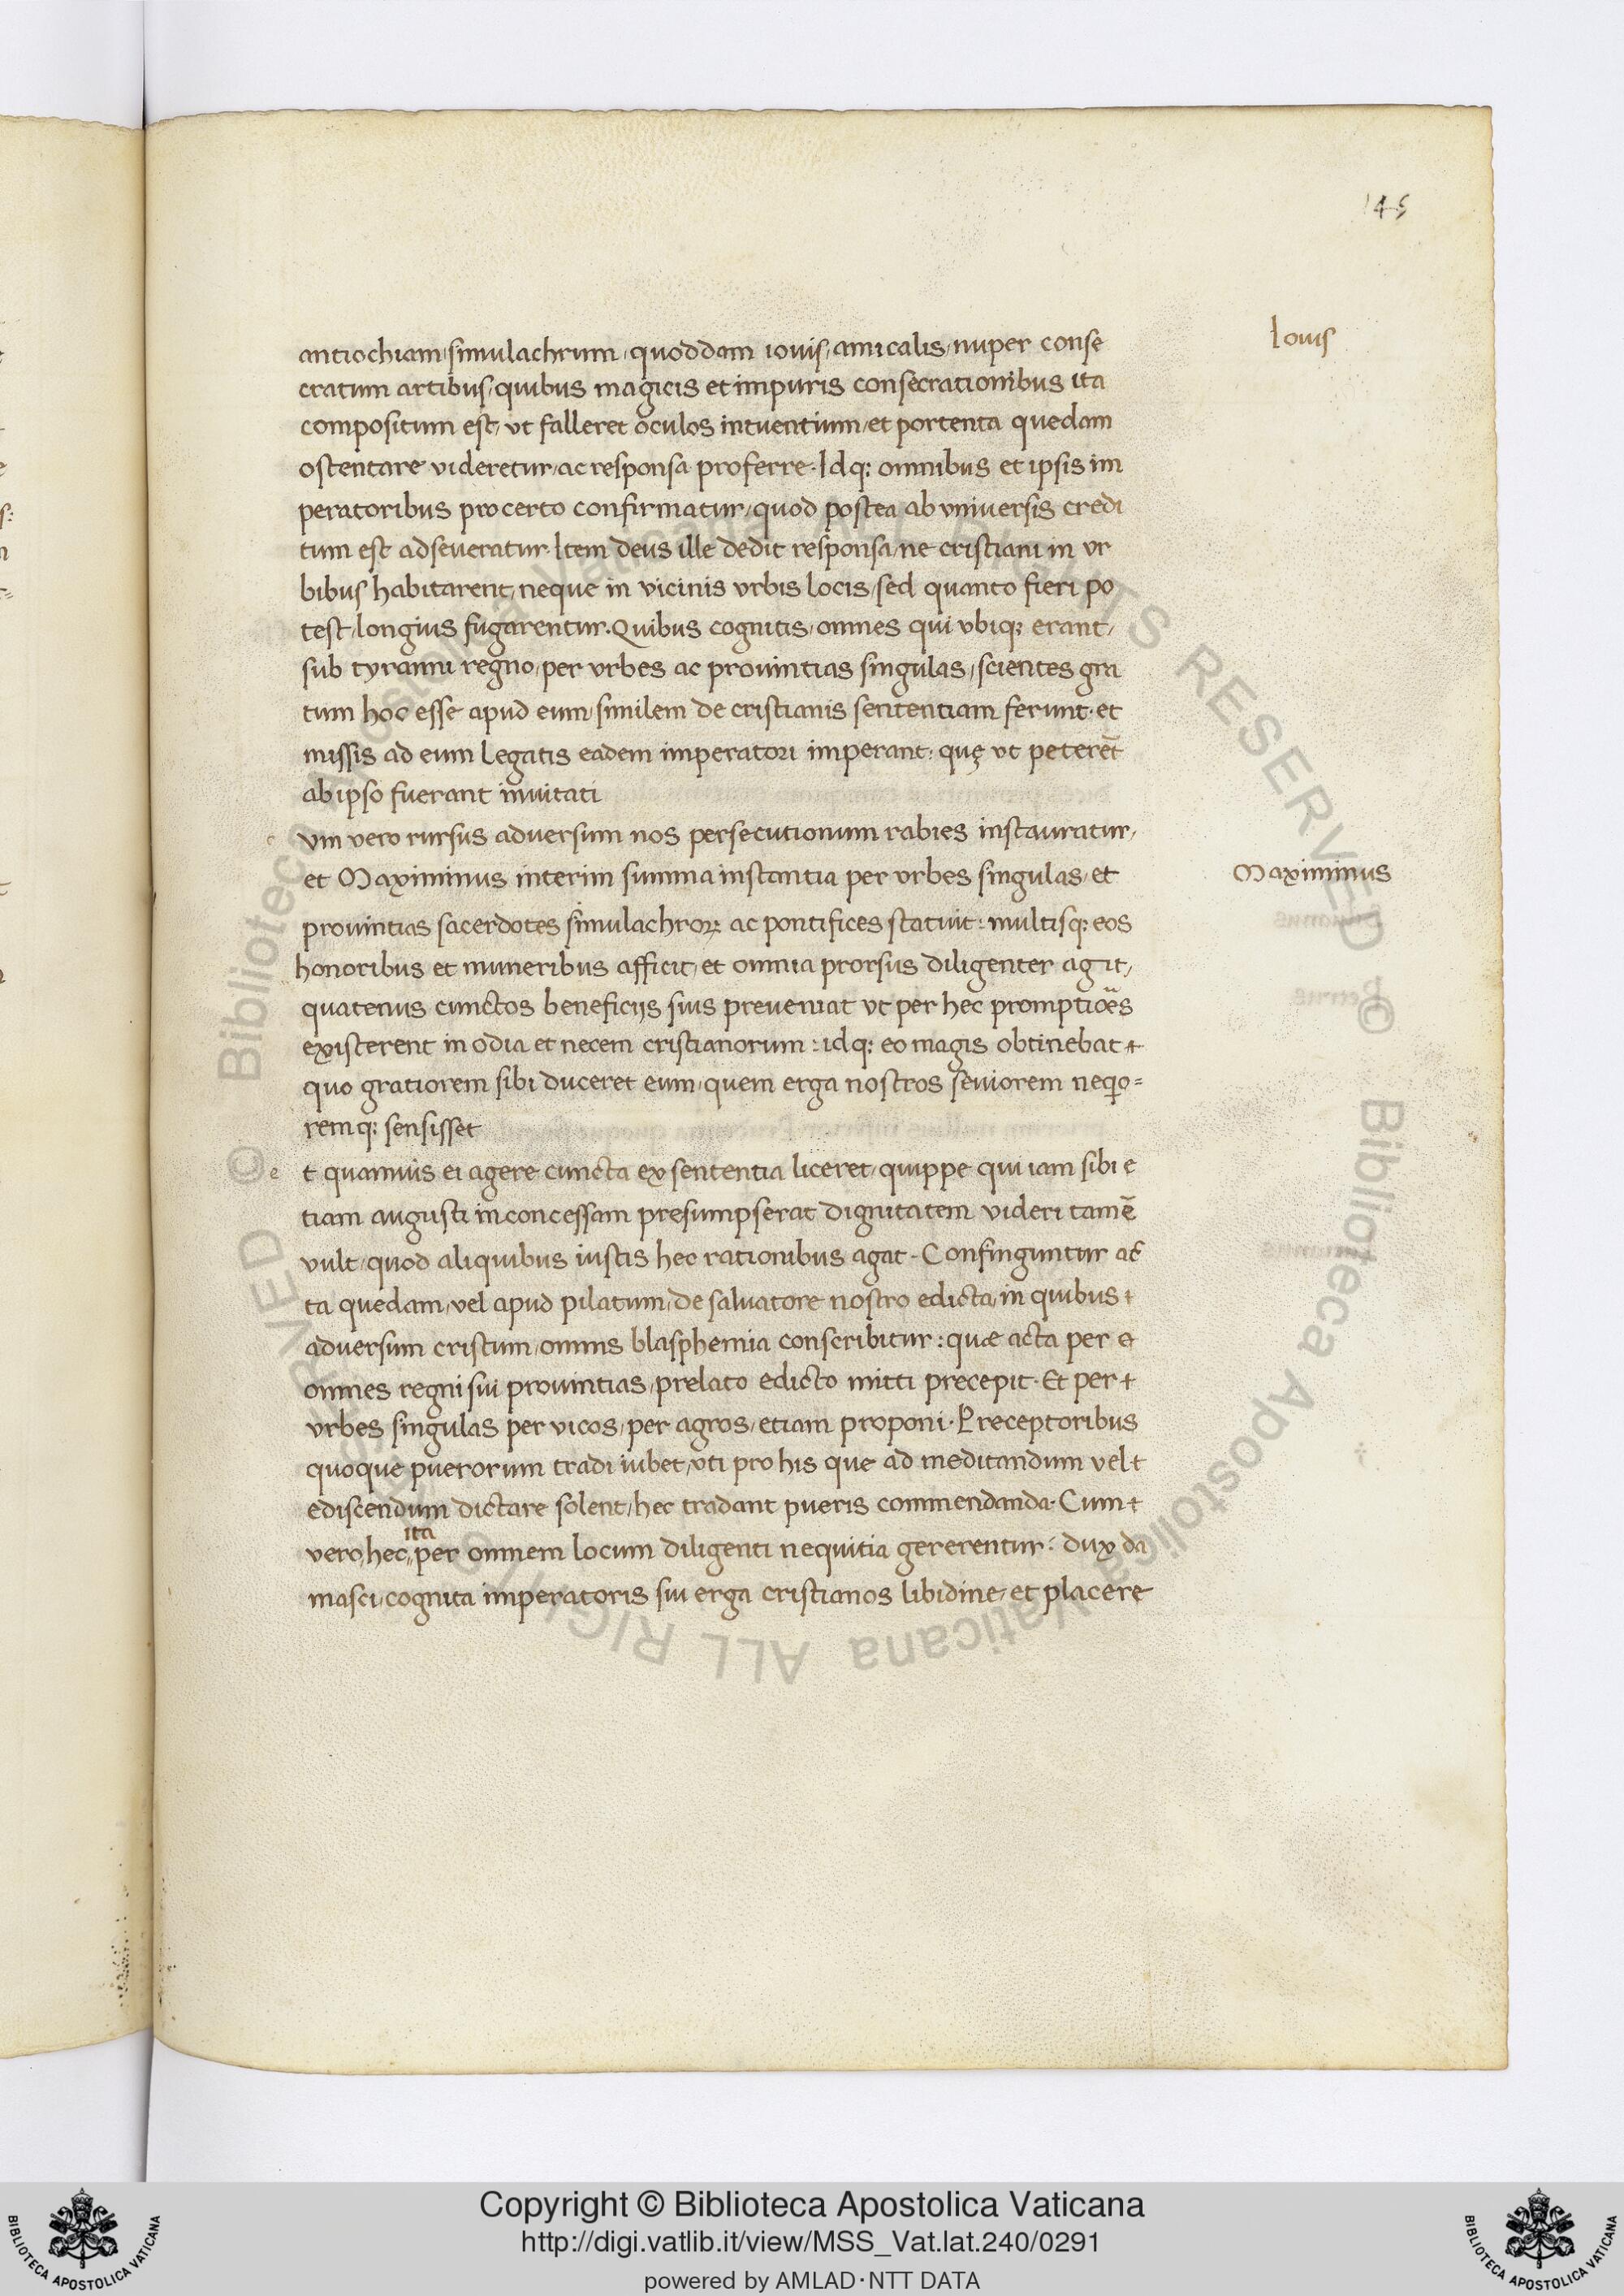 145
Iouis
antiochiam/simulachrum/quoddam iouis/amicalis/nuper conse
cratum artibus/quibus magicis et impuris consecrationibus ita
compositum est/ vt falleret oculos intuentium/et portenta quedam
ostentare videretur/ac responsa proferre. Idq; omnibus et ipsis im
peratoribus pro certo confirmatur/quod postea ab vniuersis credi
tum est adseueratur. Item deus ille dedit responsa/ne cristiani in vr
bibus habitarent/neque in vicinis vrbis locis/sed quanto fieri po
test/longius fugarentur. Quibus cognitis/omnes qui vbiq; erant/
sub tyranni regno/per vrbes ac prouintias singulas/scientes gra
tum hoc esse apud eum/similem de cristianis sententiam ferunt. et
missis ad eum legatis eadem imperatori imperant: quę vt peterēt
ab ipso fuerant inuitati
c vm vero rursus aduersum nos persecutionum rabies instauratur/
et Maximinus interim summa instantia per vrbes singulas/et
Maximinus
prouintias sacerdotes simulachroꝝ ac pontifices statuit: multisq; eos
honoribus et muneribus afficit/et omnia prorsus diligenter agit/
quatenus cunctos beneficijs suis preueniat vt per hec promptiões
existerent in odia et necem cristianorum: idq; eo magis obtinebat +
quo gratiorem sibi duceret eum/quem erga nostros seuiorem neqio=
remq; sensisset
e t quamuis ei agere cuncta ex sententia liceret/quippe qui iam sibi e
tiam augusti inconcessam presumpserat dignitatem videri tamē
vult/quod aliquibus iustis hec rationibus agat. Confinguntur ac
ta quedam/vel apud pilatum/de saluatore nostro edicta/in quibus +
aduersum cristum/omnis blasphemia conscribitur: quæ acta per e
omnes regni sui prouintias/prelato edicto mitti precepit. Et per +
vrbes singulas per vicos/per agros/etiam proponi. Preceptoribus
quoque puerorum tradi iubet/vti pro his que ad meditandum vel +
ediscendum dictare solent/hec tradant pueris commendanda. Cum +
ita
vero/hec/per omnem locum diligenti nequitia gererentur: dux da
masci/cognita imperatoris sui erga cristianos libidine/et placere
Copyright © Biblioteca Apostolica Vaticana
http://digi.vatlib.it/view/MSS_Vat.lat.240/0291
powered by AMLAD·NTT DATA
BIBLIOTECA APOSTOLICA VATICANA
BIBLIOTECA APOSTOLICA VATICANA